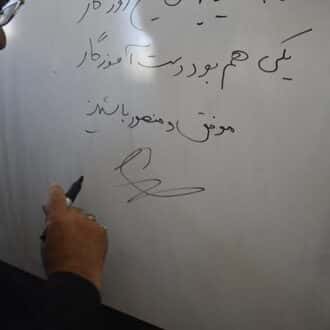 روزگار
یکی هم بود دست آموزگار
موفق و منصور باشید